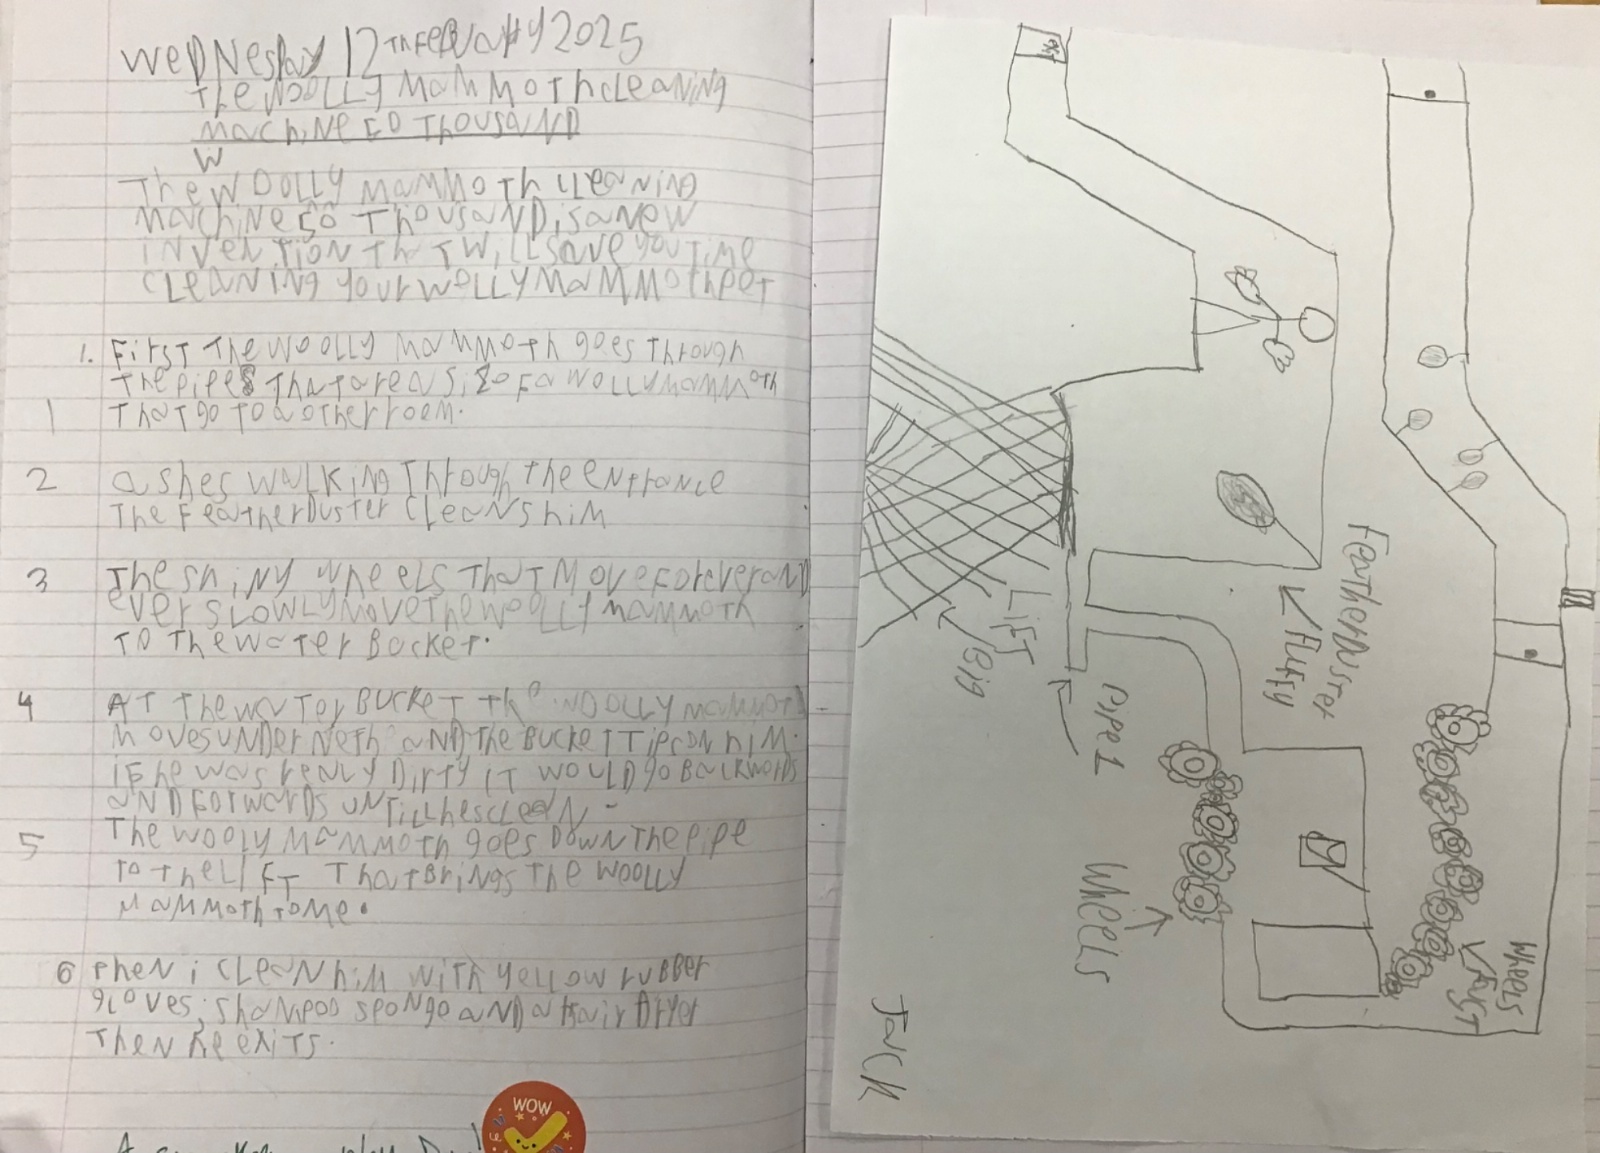 Wednesday 12th February 2025
The Woolly Mammoth cleaning
machine 50 thousand
W
The Woolly mammoth cleaning
machine 50 Thousand is a new
invention tht will save you time
cleaning your wolly mammoth pet
1. First the woolly mammoth goes through
the pipes that are a size of a wolly mammoth
1 that go to a other roem.
2 as hes walking through the entrance
the featherduster cleans him
3 The shiny wheels that move forever and
ever slowly move the woolly mammoth
to the water bucket.
4 At the water bucket the woolly mammoth
moves underneth and the bucket tips on him.
if he was realy dirty it would go backwords
and forwards untill hes clean
5 The wooly mammoth goes down the pipe
to the lift that brings the woolly
mammoth to me.
6 then i clean him with yellow rubber
gloves, shampoo spongo and a hair dryer
then he exits.
WOW
Featherduster
fluffy
Lift
Big
Pipe 1
Wheels
Wheels
Jack